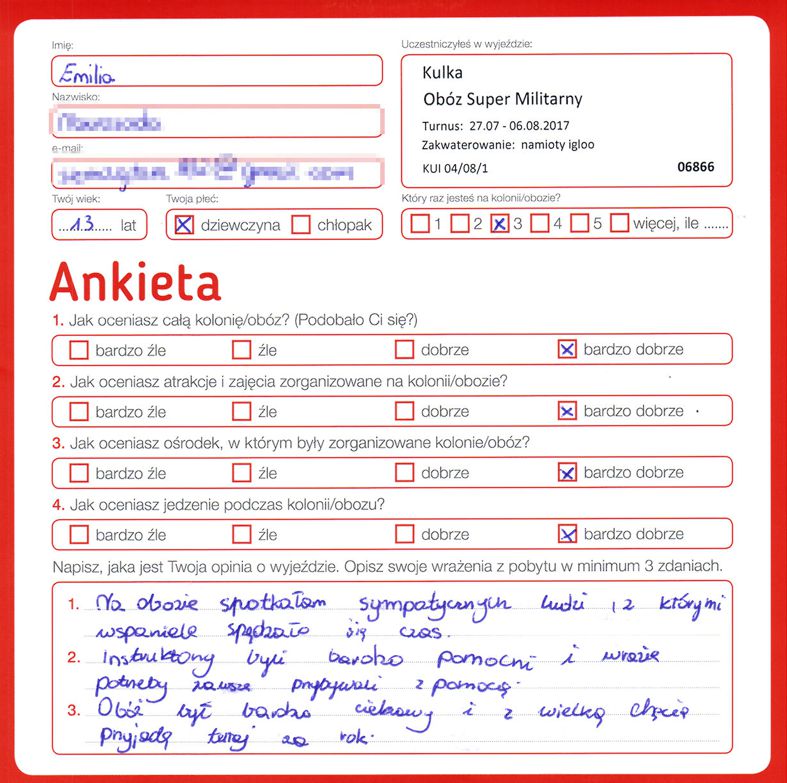 Imię:
Emilia
Uczestniczyłeś w wyjeździe:
Kulka
Obóz Super Militarny
Turnus: 27.07 - 06.08.2017
Zakwaterowanie: namioty igloo
KUI 04/08/1 06866
Nazwisko:
e-mail:
Twój wiek:
...13..... lat
Twoja płeć:
dziewczyna chłopak
Który raz jesteś na kolonii/obozie?
1 2 3 4 5 więcej, ile .......
Ankieta
1. Jak oceniasz całą kolonię/obóz? (Podobało Ci się?)
bardzo źle źle dobrze bardzo dobrze
2. Jak oceniasz atrakcje i zajęcia zorganizowane na kolonii/obozie?
bardzo źle źle dobrze bardzo dobrze
3. Jak oceniasz ośrodek, w którym były zorganizowane kolonie/obóz?
bardzo źle źle dobrze bardzo dobrze
4. Jak oceniasz jedzenie podczas kolonii/obozu?
bardzo źle źle dobrze bardzo dobrze
Napisz, jaka jest Twoja opinia o wyjeździe. Opisz swoje wrażenia z pobytu w minimum 3 zdaniach.
1. Na obozie spotkałam sympatycznych ludzi , z którymi
wspaniele spędzało się czas.
2. Instruktorzy byli bardzo pomocni i wrazie
potrzeby zawsze przybywali z pomocą.
3. Obóz był bardzo ciekawy i z wielką chęcią
przyjadę tutaj za rok.